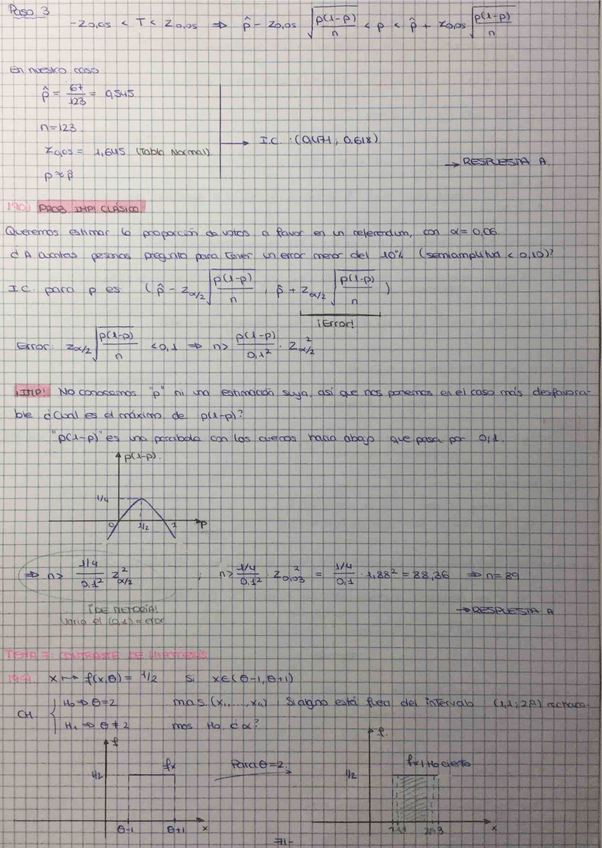 Paso 3
-Z0,05 < T < Z0,05 ⇒ p̂ - Z0,05 √(p(1-p)/n) < p < p̂ + Z0,05 √(p(1-p)/n)
En nuestro caso
p̂ = 67/123 = 0,545
n=123
Z0,05 = 1,645 (Tabla Normal) → I.C.: (0,471, 0,618)
→ RESPUESTA A.
p ≈ p̂
190) PROB. IMP! CLÁSICO
Queremos estimar la proporción de votos a favor en un referendum, con α=0,06.
¿A cuantas personas pregunto para tener un error menor del 10% (semiamplitud < 0,10)?
I.C. para p es (p̂ - Zα/2 √(p(1-p)/n), p̂ + Zα/2 √(p(1-p)/n))
¡Error!
Error: Zα/2 √(p(1-p)/n) < 0,1 ⇒ n > p(1-p)/0,1² · Z²α/2
¡IMP! No conocemos "p" ni una estimación suya, así que nos ponemos en el caso más desfavora-
ble ¿Cual es el máximo de p(1-p)?
"p(1-p)" es una parabola con los cuernos hacia abajo que pasa por 0,1.
p(1-p)
1/4
0 1/2 1 p
⇒ n > 1/4 / 0,1² Z²α/2 ; n > 1/4 / 0,1² · Z²0,03 = 1/4 / 0,1 · 1,88² = 88,36 ⇒ n=89
¡DE MEMORIA!
→ RESPUESTA A
Vario el (0,1) = error
TEMA 7: CONTRASTE DE HIPOTESIS
x ↦ f(x,θ) = 1/2 si x∈(θ-1, θ+1)
CH { H0 ⇒ θ=2 mas (x1, ..., xn) Si alguno está fuera del intervalo (1,1; 2,8) rechaza-
H1 ⇒ θ≠2 mos H0 ¿α?
f fx Para θ=2 f fx | H0 cierto
1/2 1/2
θ-1 θ+1 x x
71-